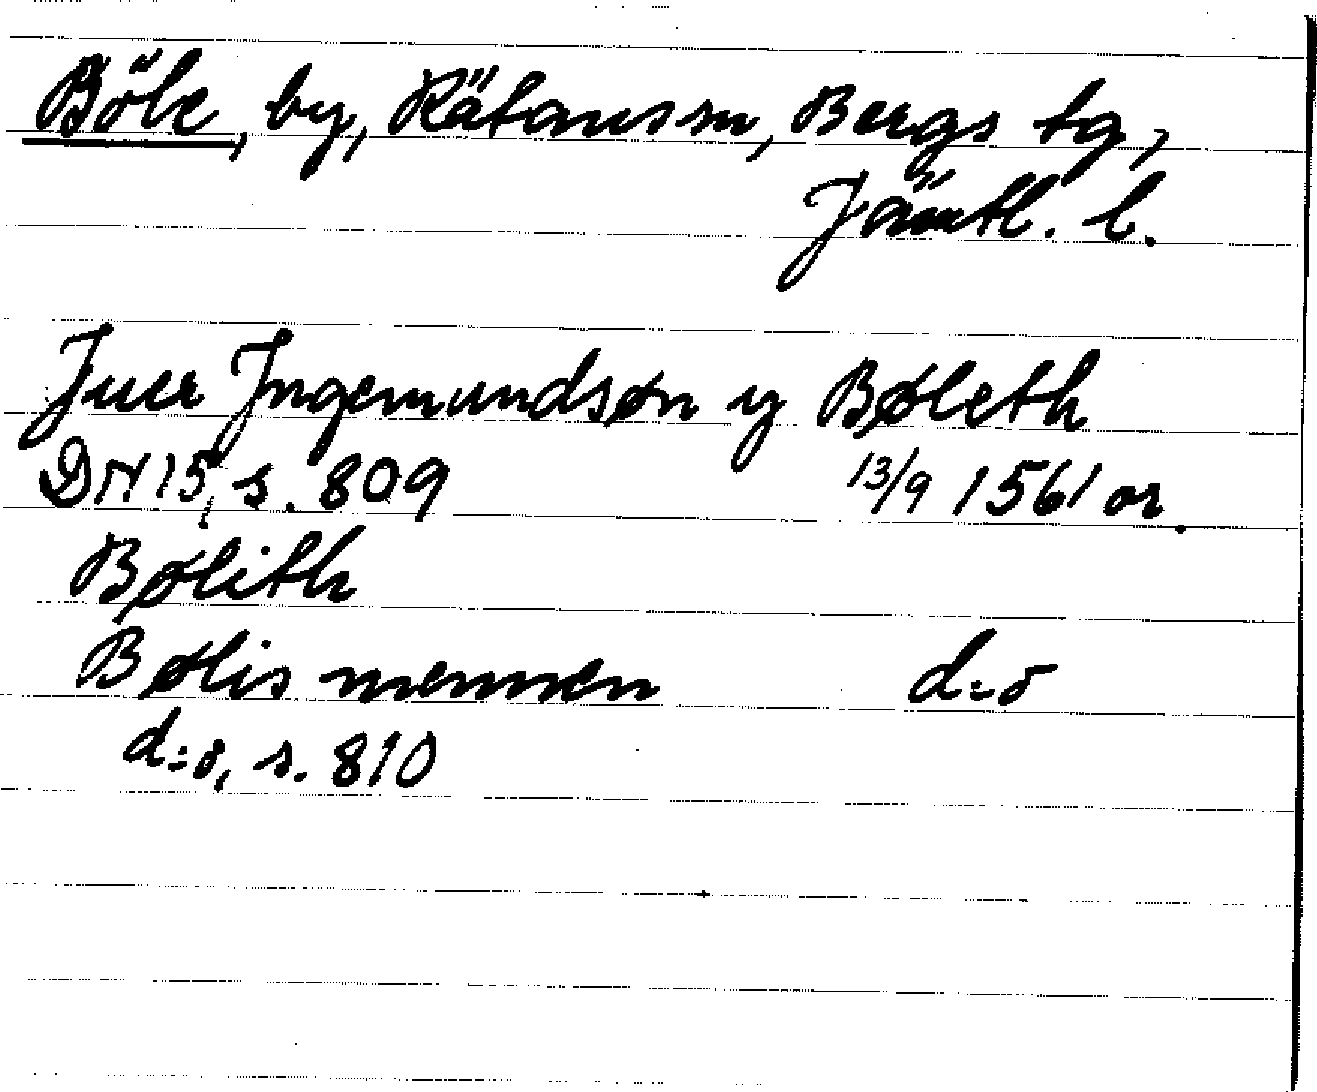 Böle, by, Rätans sn, Bergs tg,
Jämtl. l.
Juer Jngemundsøn y Bøleth
DN 15, s. 809 13/9 1561 or.
Bølith
Bølis mennen d:o
d:o, s. 810